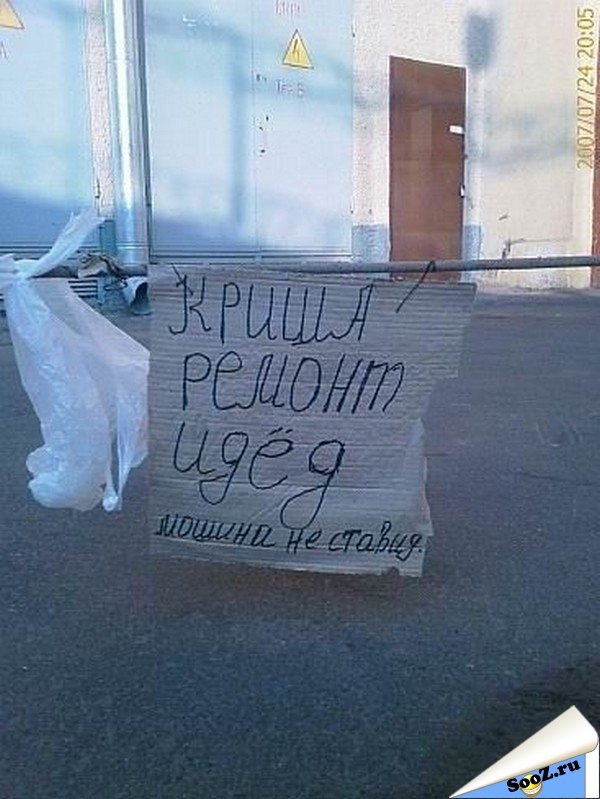 2007/07/24 20:05
КРИША
РЕМОНТ
идёд
машина не ставид.
SooZ.ru